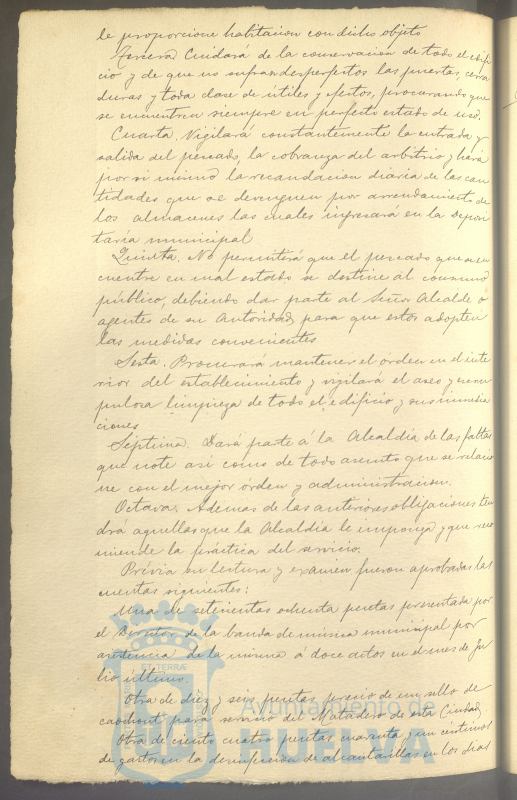 le proporcione habitacion con dicho objeto
Tercera. Cuidará de la conservacion de todo el edifi
cio y de que no sufran desperfectos las puertas, cerra
duras y toda clase de útiles y efectos, procurando que
se encuentren siempre en perfecto estado de uso.
Cuarta. Vigilará constantemente la entrada y
salida del pescado, la cobranza del arbitrio y hará
por si mismo la recaudacion diaria de las can
tidades que se devenguen por arrendamiento de
los almacenes las cuales ingresará en la Deposi
taría municipal
Quinta. No permitirá que el pescado que se en
cuentre en mal estado se destine al consumo
público, debiendo dar parte al Señor Alcalde ó
agentes de su Autoridad, para que estos adopten
las medidas convenientes
Sesta. Procurará mantener el órden en el inte
rior del establecimiento y vigilará el aseo y escru
pulosa limpieza de todo el edificio y sus inmedia
ciones
Séptima. Dará parte á la Alcaldía de las faltas
que note asi como de todo asunto que se relacio
ne con el mejor órden y administracion.
Octava. Ademas de las anteriores obligaciones ten
drá aquellas que la Alcaldía le imponga y que reco
miende la práctica del servicio.
Prévia su lectura y exámen fueron aprobadas las
cuentas siguientes:
Una de setecientas ochenta pesetas presentada por
el Director de la banda de música municipal por
asistencia de la misma á doce actos en el mes de Ju
lio último.
Otra de diez y seis pesetas precio de un sello de
caochout para servicio del Matadero de esta Ciudad.
Otra de ciento cuatro pesetas cuarenta y un céntimos
de gastos en la desinfeccion de alcantarillas en los dias
ET TERRÆ
Ayuntamiento de
HUELVA